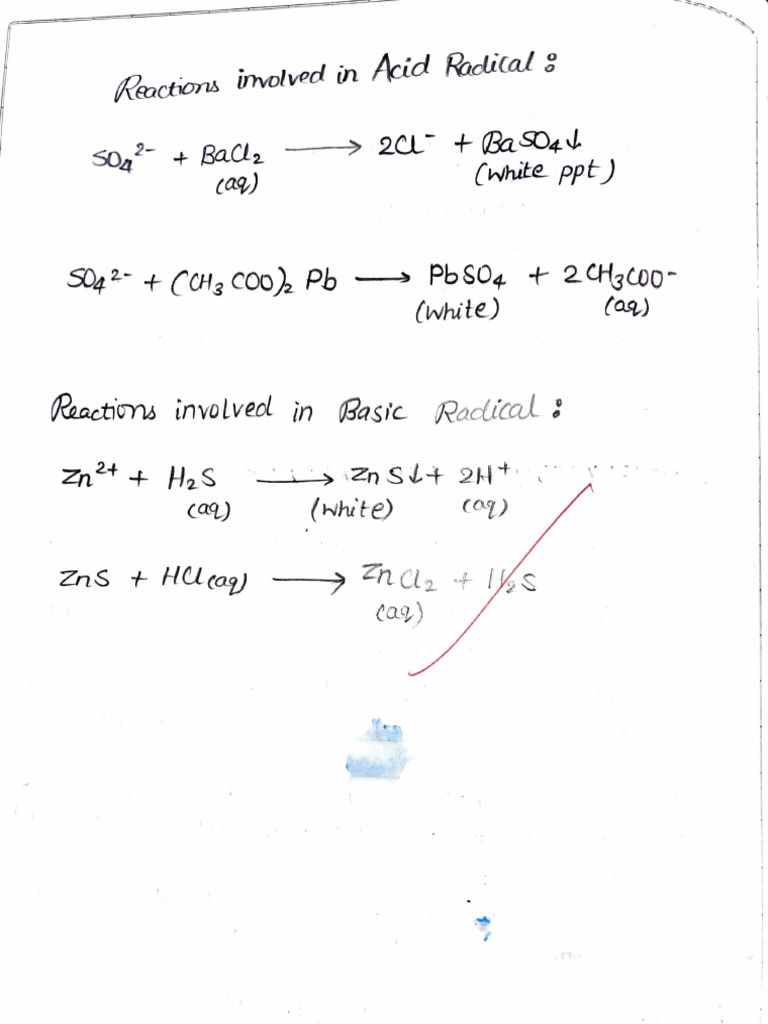 Reactions involved in Acid Radical :
SO₄²⁻ + BaCl₂ ⟶ 2Cl⁻ + BaSO₄↓
(aq) (white ppt)
SO₄²⁻ + (CH₃COO)₂ Pb ⟶ PbSO₄ + 2CH₃COO⁻
(white) (aq)
Reactions involved in Basic Radical :
Zn²⁺ + H₂S ⟶ ZnS↓ + 2H⁺
(aq) (white) (aq)
ZnS + HCl(aq) ⟶ ZnCl₂ + H₂S
(aq)